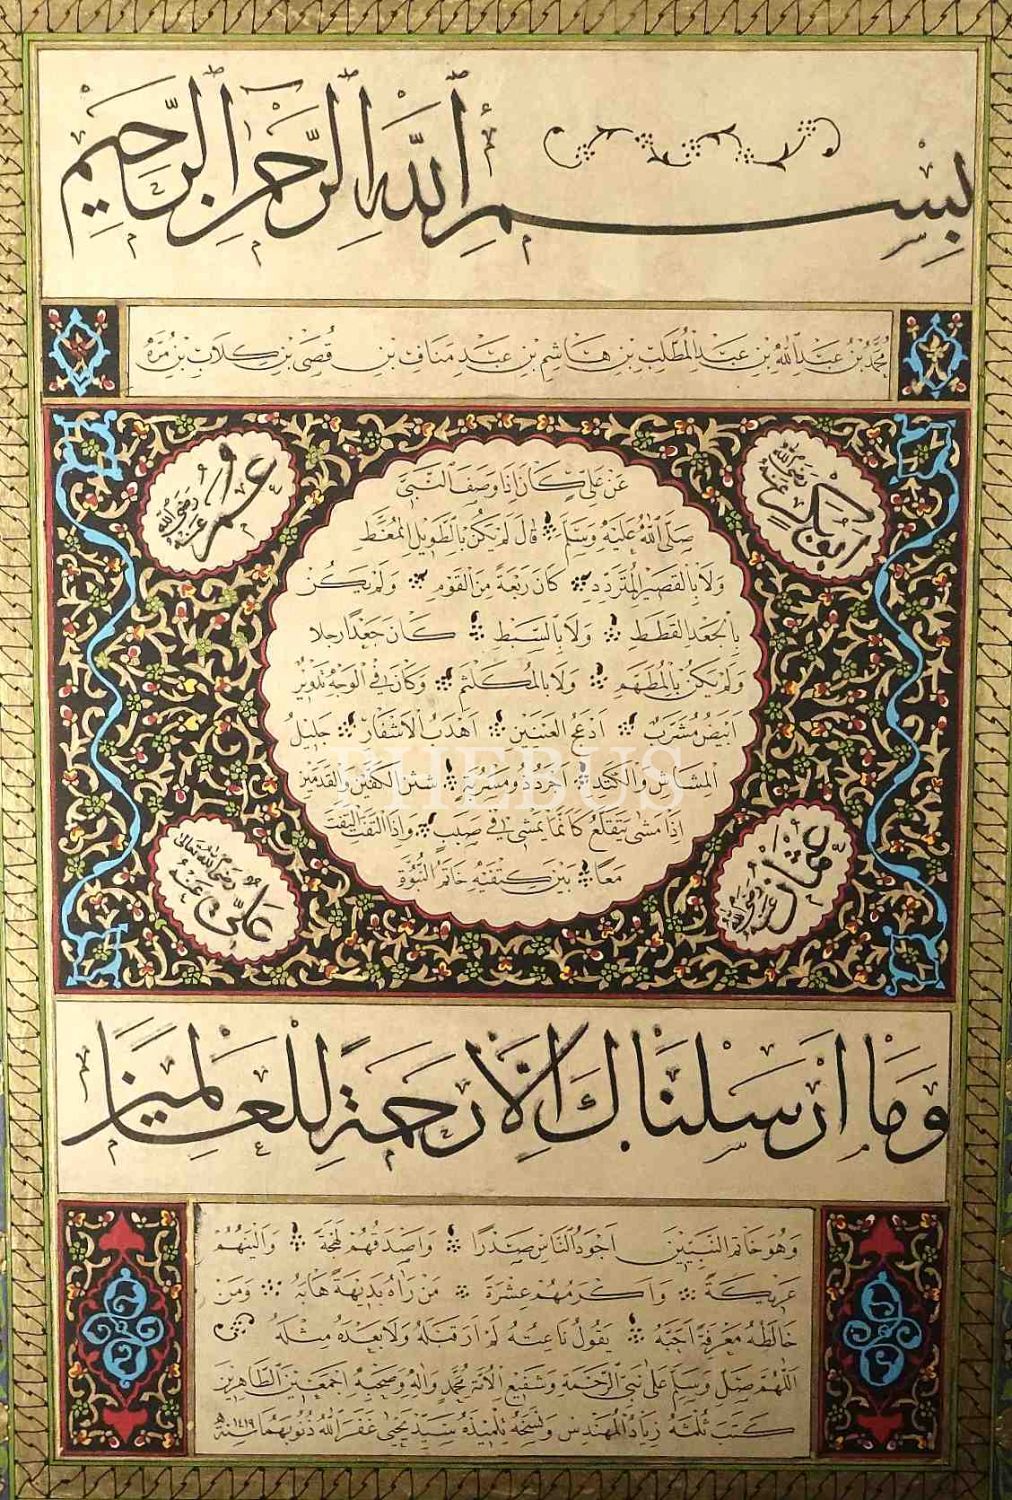 بسم الله الرحمن الرحيم
محمد بن عبد الله بن عبد المطلب بن هاشم بن عبد مناف بن قصي بن كلاب بن مره
ابو بكر رضي الله عنه
عمر رضي الله عنه
عن علي كان اذا وصف النبي
صلى الله عليه وسلم قال لم يكن بالطويل الممغط
ولا بالقصير المتردد كان ربعة من القوم ولم يكن
بالجعد القطط ولا بالسبط كان جعدا رجلا
ولم يكن بالمطهم ولا بالمكلثم وكان في الوجه تدوير
ابيض مشرب ادعج العينين اهدب الاشفار جليل
المشاش والكتد اجرد ذو مسربة شثن الكفين والقدمين
اذا مشى يتقلع كانما يمشي في صبب واذا التفت التفت
معا بين كتفيه خاتم النبوة
PHEBUS
عثمان رضي الله عنه
علي رضي الله تعالى عنه
وما ارسلناك الا رحمة للعالمين
وهو خاتم النبيين اجود الناس صدرا واصدقهم لهجة والينهم
عريكة واكرمهم عشرة من راه بديهة هابه ومن
خالطه معرفة احبه يقول ناعته لم ار قبله ولا بعده مثله
اللهم صل وسلم على نبي الرحمة وشفيع الامة محمد واله وصحبه اجمعين الطاهرين
كتب زياد المهندس ونسخه تلميذه سيد يحيى غفر الله ذنوبهما سنة ١٤١٩ه